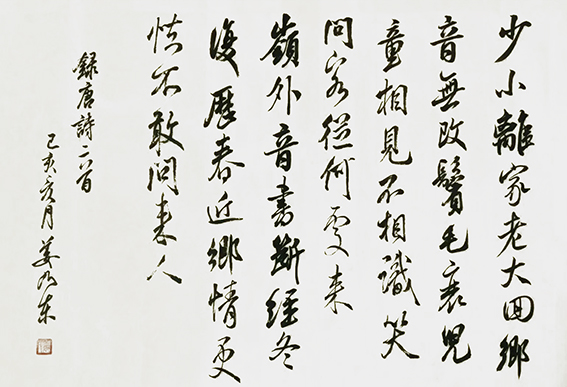 少小離家老大回鄉
音無改鬢毛衰兒
童相見不相識笑
問客從何處来
嶺外音書斷經冬
復歷春近鄉情更
怯不敢問來人
録唐詩二首
己亥 月 姜乃東